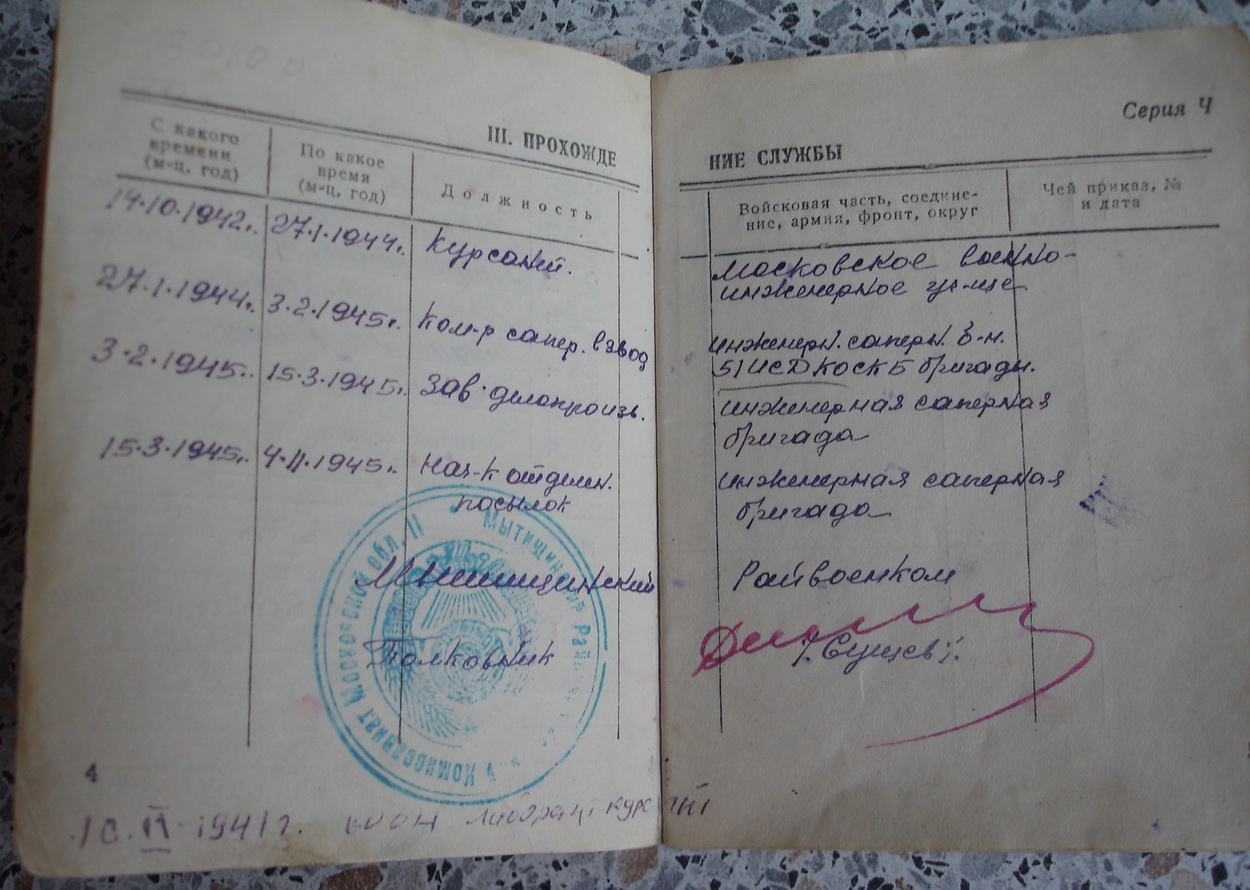 III. ПРОХОЖДЕ
С какого
времени
(м-ц, год)
По какое
время
(м-ц, год)
Должность
14.10.1942г. 27.1.1944г. Курсант.
27.1.1944г. 3.2.1945г. Ком-р сапер. взвод
3.2.1945г. 15.3.1945г. Зав. делопроизв.
15.3.1945г. 4.11.1945г. Нач-к отделен.
посылок
Мытищинский
Полковник
Мытищинский Рай
Комиссариат Московской обл.
4
1941г.
Серия Ч
НИЕ СЛУЖБЫ
Войсковая часть, соедине-
ние, армия, фронт, округ
Чей приказ, №
и дата
Московское военно-
инженерное уч-ще
инженерн. саперн. б-н.
бригады.
инженерная саперная
бригада
инженерная саперная
бригада
Райвоенком
/Сущев/.